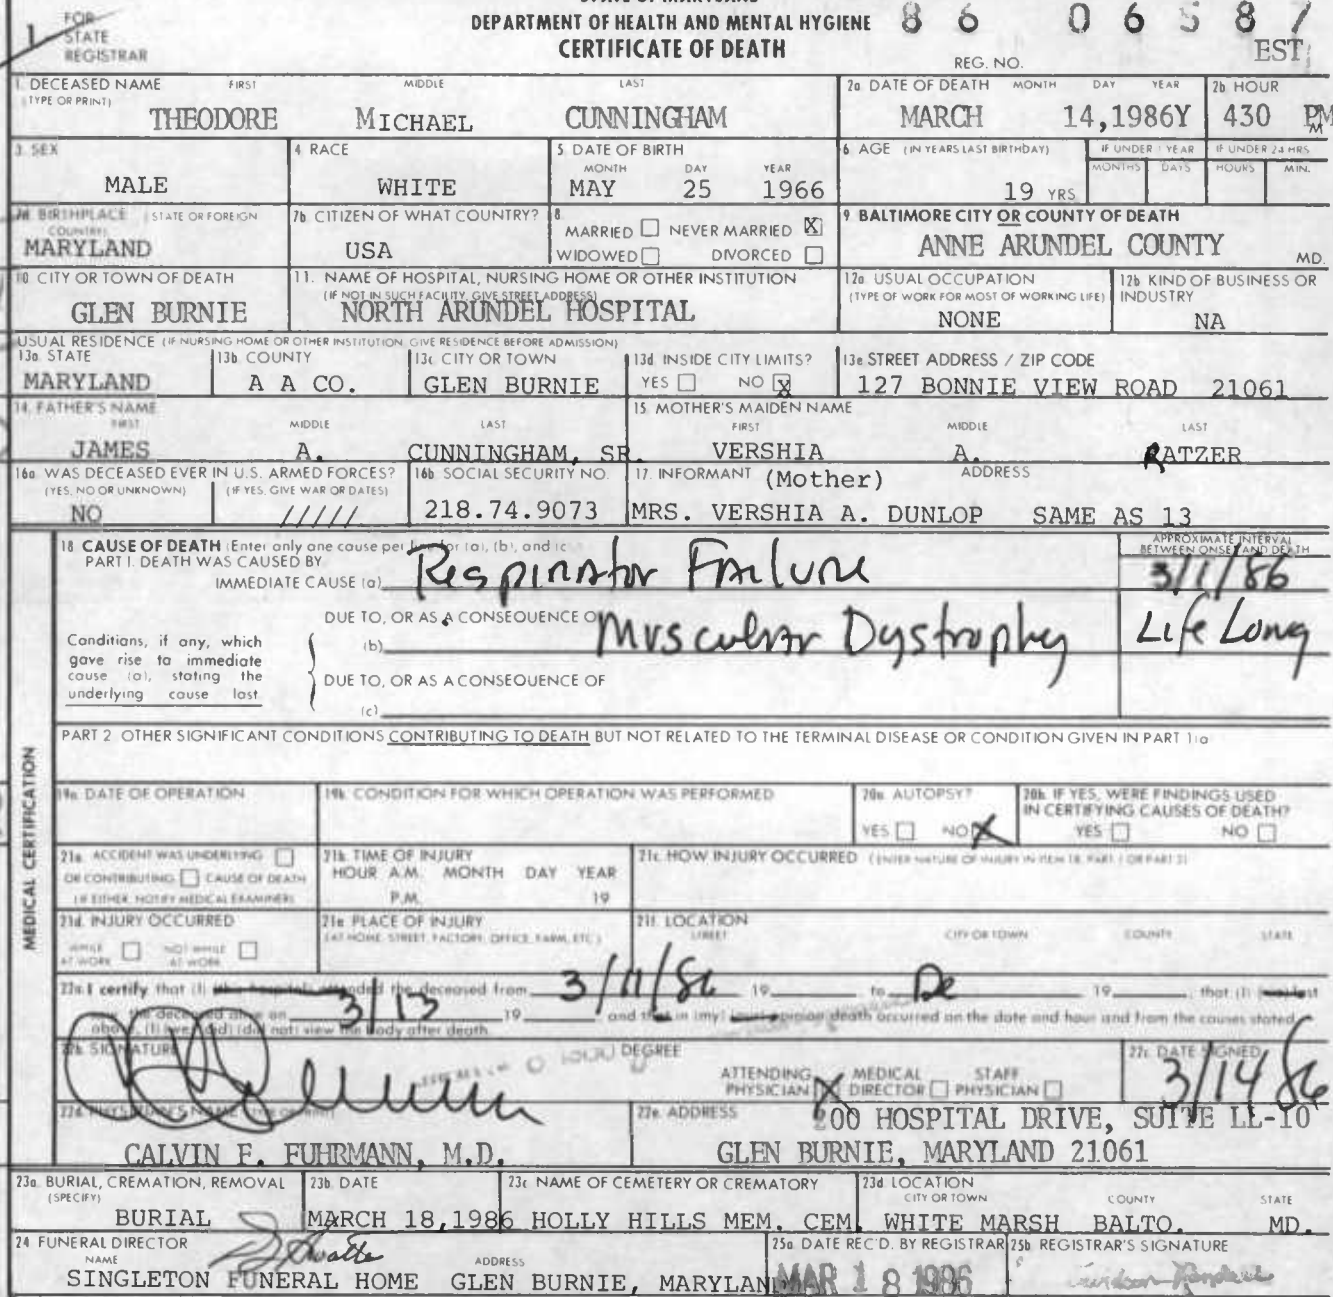 FOR STATE REGISTRAR
1
DEPARTMENT OF HEALTH AND MENTAL HYGIENE
CERTIFICATE OF DEATH
86 06587
REG. NO.
EST
1. DECEASED NAME (TYPE OR PRINT) FIRST MIDDLE LAST
THEODORE MICHAEL CUNNINGHAM
2a DATE OF DEATH MONTH DAY YEAR
MARCH 14,1986Y
2b HOUR
430 PM M
3. SEX
MALE
4 RACE
WHITE
5 DATE OF BIRTH MONTH DAY YEAR
MAY 25 1966
6 AGE (IN YEARS LAST BIRTHDAY)
19 YRS
IF UNDER 1 YEAR MONTHS DAYS
IF UNDER 24 HRS HOURS MIN.
7a BIRTHPLACE (STATE OR FOREIGN COUNTRY)
MARYLAND
7b CITIZEN OF WHAT COUNTRY?
USA
8. MARRIED NEVER MARRIED X
WIDOWED DIVORCED
9 BALTIMORE CITY OR COUNTY OF DEATH
ANNE ARUNDEL COUNTY MD.
10 CITY OR TOWN OF DEATH
GLEN BURNIE
11. NAME OF HOSPITAL, NURSING HOME OR OTHER INSTITUTION
(IF NOT IN SUCH FACILITY, GIVE STREET ADDRESS)
NORTH ARUNDEL HOSPITAL
12a USUAL OCCUPATION
(TYPE OF WORK FOR MOST OF WORKING LIFE)
NONE
12b KIND OF BUSINESS OR INDUSTRY
NA
USUAL RESIDENCE (IF NURSING HOME OR OTHER INSTITUTION GIVE RESIDENCE BEFORE ADMISSION)
13a. STATE
MARYLAND
13b COUNTY
A A CO.
13c CITY OR TOWN
GLEN BURNIE
13d INSIDE CITY LIMITS?
YES NO X
13e STREET ADDRESS / ZIP CODE
127 BONNIE VIEW ROAD 21061
14. FATHER'S NAME FIRST MIDDLE LAST
JAMES A. CUNNINGHAM, SR.
15. MOTHER'S MAIDEN NAME FIRST MIDDLE LAST
VERSHIA A. RATZER
16a WAS DECEASED EVER IN U.S. ARMED FORCES?
(YES, NO OR UNKNOWN) (IF YES, GIVE WAR OR DATES)
NO /////
16b SOCIAL SECURITY NO.
218.74.9073
17. INFORMANT (Mother) ADDRESS
MRS. VERSHIA A. DUNLOP SAME AS 13
18 CAUSE OF DEATH (Enter only one cause per line for (a), (b), and (c)
PART I. DEATH WAS CAUSED BY
IMMEDIATE CAUSE (a) Respirator Failure
APPROXIMATE INTERVAL BETWEEN ONSET AND DEATH
3/1/86
DUE TO, OR AS A CONSEQUENCE OF
(b) Muscular Dystrophy Life Long
Conditions, if any, which gave rise to immediate cause (a), stating the underlying cause last.
DUE TO, OR AS A CONSEQUENCE OF
(c)
PART 2 OTHER SIGNIFICANT CONDITIONS CONTRIBUTING TO DEATH BUT NOT RELATED TO THE TERMINAL DISEASE OR CONDITION GIVEN IN PART 1(a)
MEDICAL CERTIFICATION
19a. DATE OF OPERATION
19b. CONDITION FOR WHICH OPERATION WAS PERFORMED
20a. AUTOPSY?
YES NO X
20b. IF YES, WERE FINDINGS USED IN CERTIFYING CAUSES OF DEATH?
YES NO
21a. ACCIDENT WAS UNDERLYING
OR CONTRIBUTING CAUSE OF DEATH
(IF EITHER, NOTIFY MEDICAL EXAMINER)
21b. TIME OF INJURY
HOUR A.M. MONTH DAY YEAR
P.M. 19
21c. HOW INJURY OCCURRED (ENTER NATURE OF INJURY IN ITEM 18, PART 1 OR PART 2)
21d. INJURY OCCURRED
WHILE AT WORK NOT WHILE AT WORK
21e PLACE OF INJURY
(AT HOME, STREET, FACTORY, OFFICE, FARM, ETC.)
21f. LOCATION
STREET CITY OR TOWN COUNTY STATE
22a. I certify that (I) attended the deceased from 3/11/86 19 to De 19, that (I) last
the deceased alive on 3/13 19 and that in (my) opinion death occurred on the date and hour and from the causes stated
above, (I) (did not) view the body after death.
22b. SIGNATURE
DEGREE
ATTENDING PHYSICIAN X MEDICAL DIRECTOR STAFF PHYSICIAN
22c. DATE SIGNED
3/14/86
22d. PHYSICIAN'S NAME
CALVIN E. FUHRMANN, M.D.
22e. ADDRESS
200 HOSPITAL DRIVE, SUITE LL-10
GLEN BURNIE, MARYLAND 21061
23a. BURIAL, CREMATION, REMOVAL (SPECIFY)
BURIAL
23b. DATE
MARCH 18,1986
23c NAME OF CEMETERY OR CREMATORY
HOLLY HILLS MEM. CEM.
23d LOCATION CITY OR TOWN COUNTY STATE
WHITE MARSH BALTO. MD.
24 FUNERAL DIRECTOR
NAME ADDRESS
SINGLETON FUNERAL HOME GLEN BURNIE, MARYLAND
25a. DATE REC'D. BY REGISTRAR
MAR 18 1986
25b REGISTRAR'S SIGNATURE